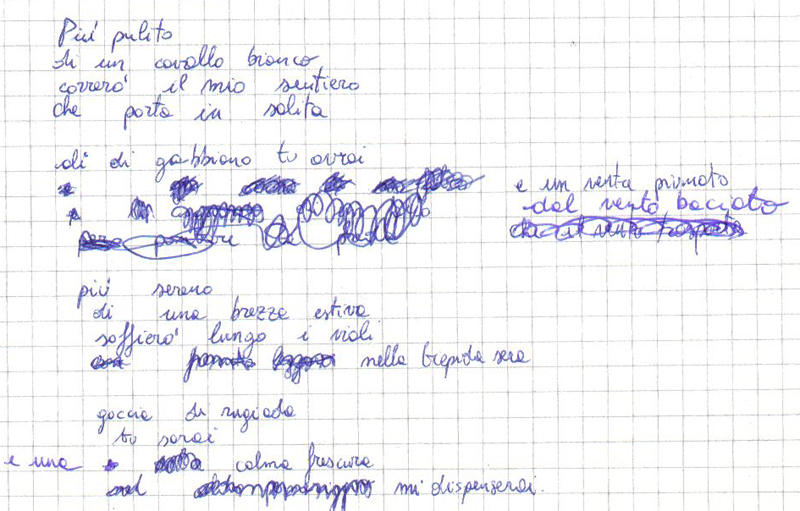 Più pulito
di un cavallo bianco
correrò il mio sentiero
che porta in salita
ali di gabbiano tu avrai
e un
dal vento baciato
più sereno
di una brezza estiva
soffierò lungo i viali
nella trepida sera
goccia di rugiada
tu sarai
e una calma frescura
mi dispenserai.